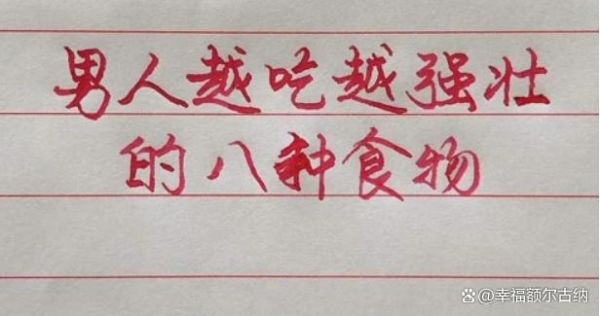 男人越吃越强壮
的八种食物
@幸福额尔古纳